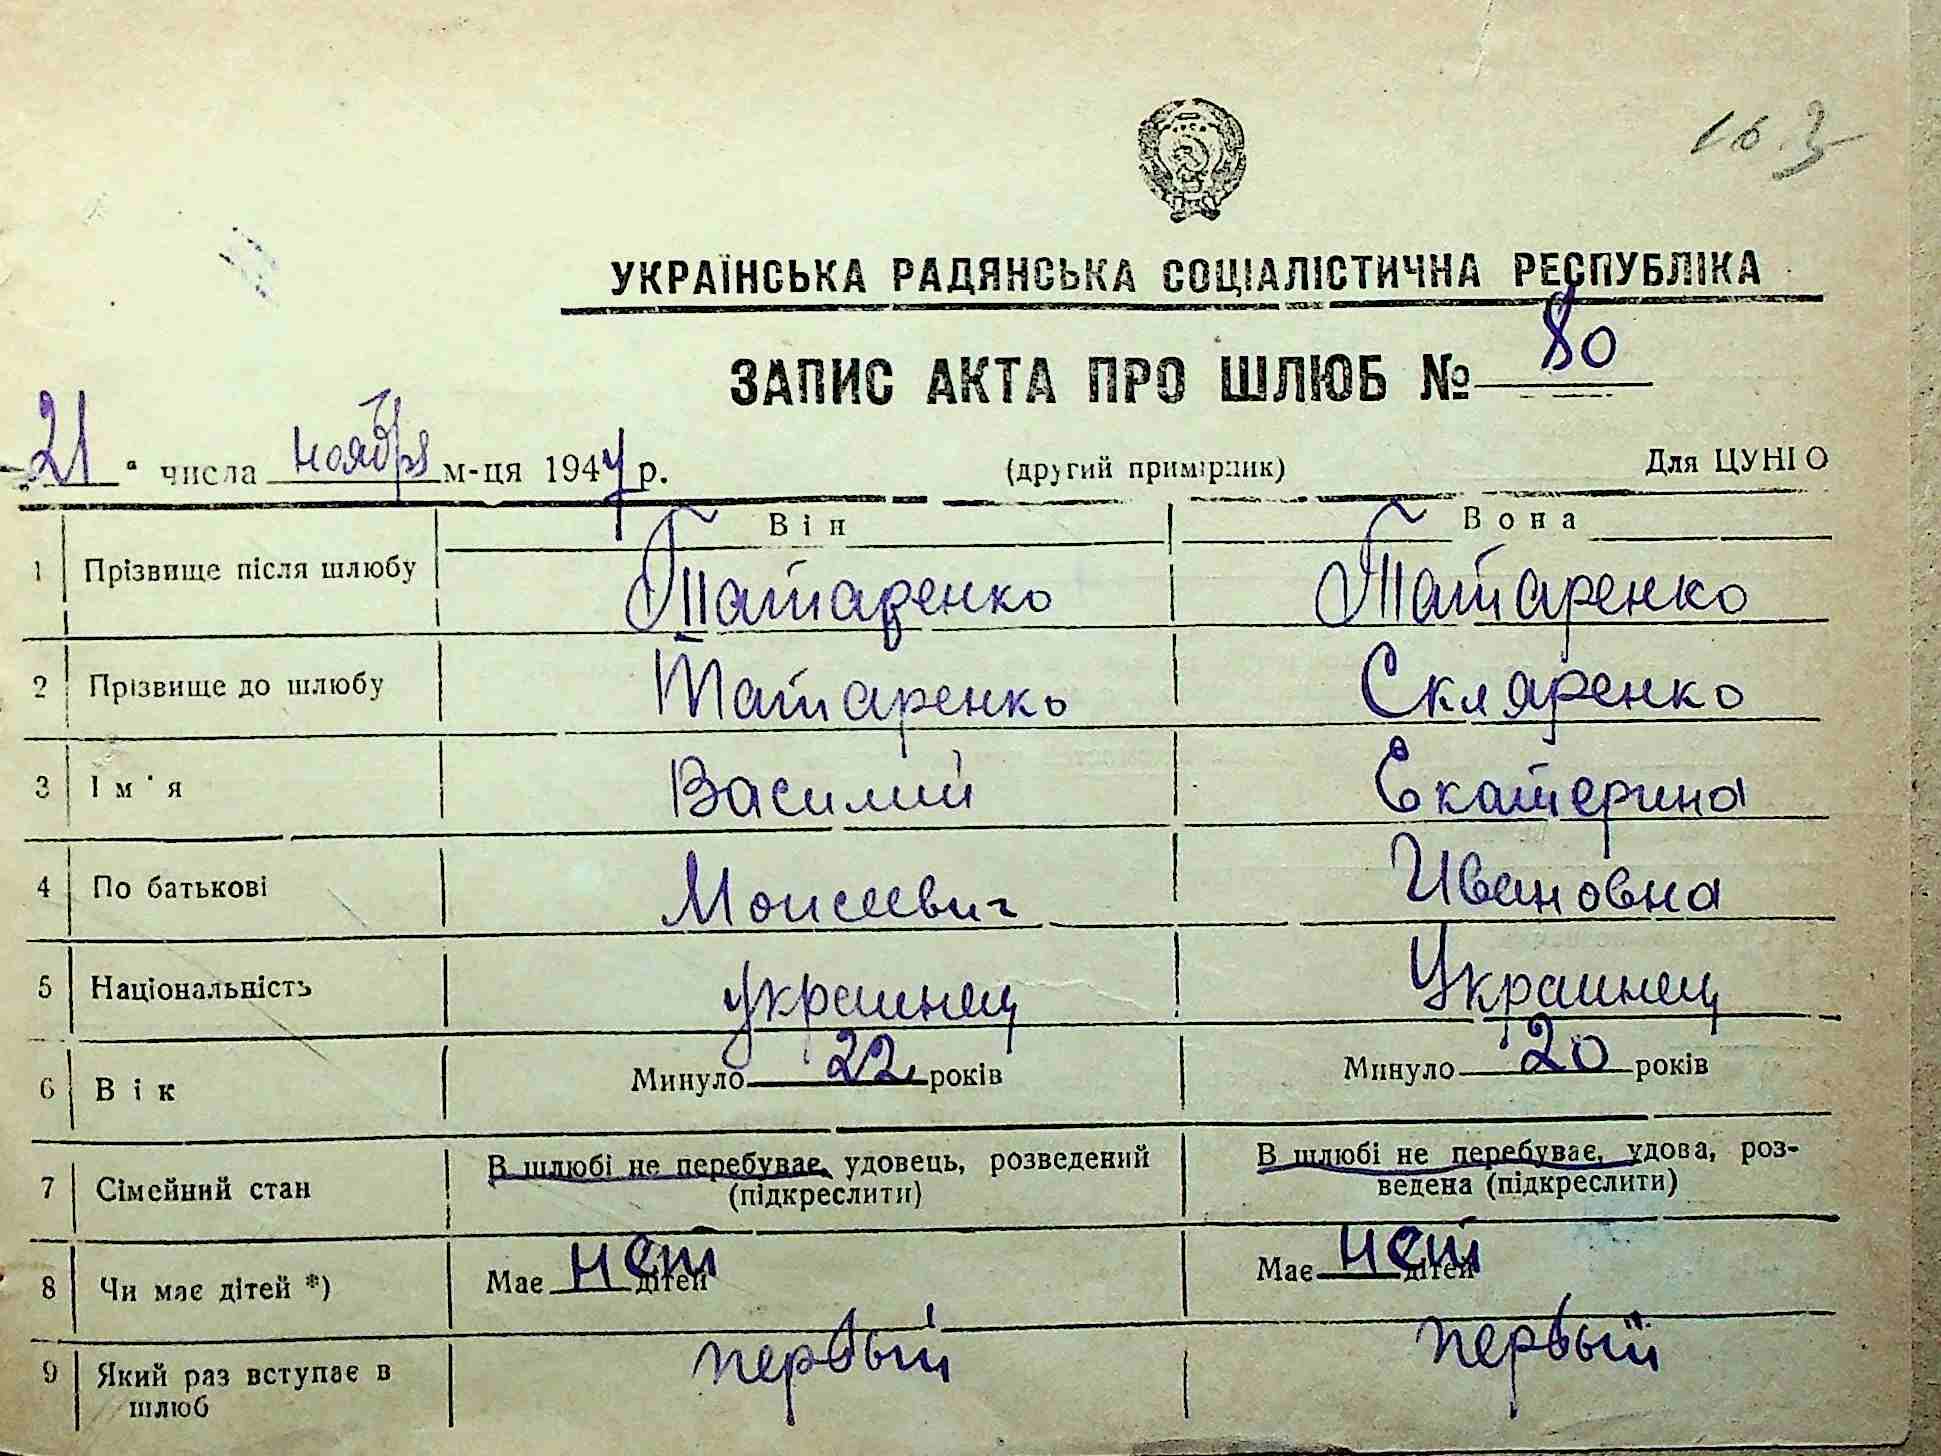 163
УКРАЇНСЬКА РАДЯНСЬКА СОЦІАЛІСТИЧНА РЕСПУБЛІКА
ЗАПИС АКТА ПРО ШЛЮБ № 80
21 " числа ноября м-ця 1947 р. (другий примірник) Для ЦУНГО
Він Вона
1 Прізвище після шлюбу Татаренко Татаренко
2 Прізвище до шлюбу Татаренко Скляренко
3 Ім'я Василий Екатерина
4 По батькові Моисеевич Ивановна
5 Національність украинец Украинец
6 Вік Минуло 22 років Минуло 20 років
7 Сімейний стан В шлюбі не перебуває, удовець, розведений (підкреслити) В шлюбі не перебуває, удова, роз-
ведена (підкреслити)
8 Чи має дітей *) Має нет дітей Має нет дітей
9 Який раз вступає в первый первый
шлюб